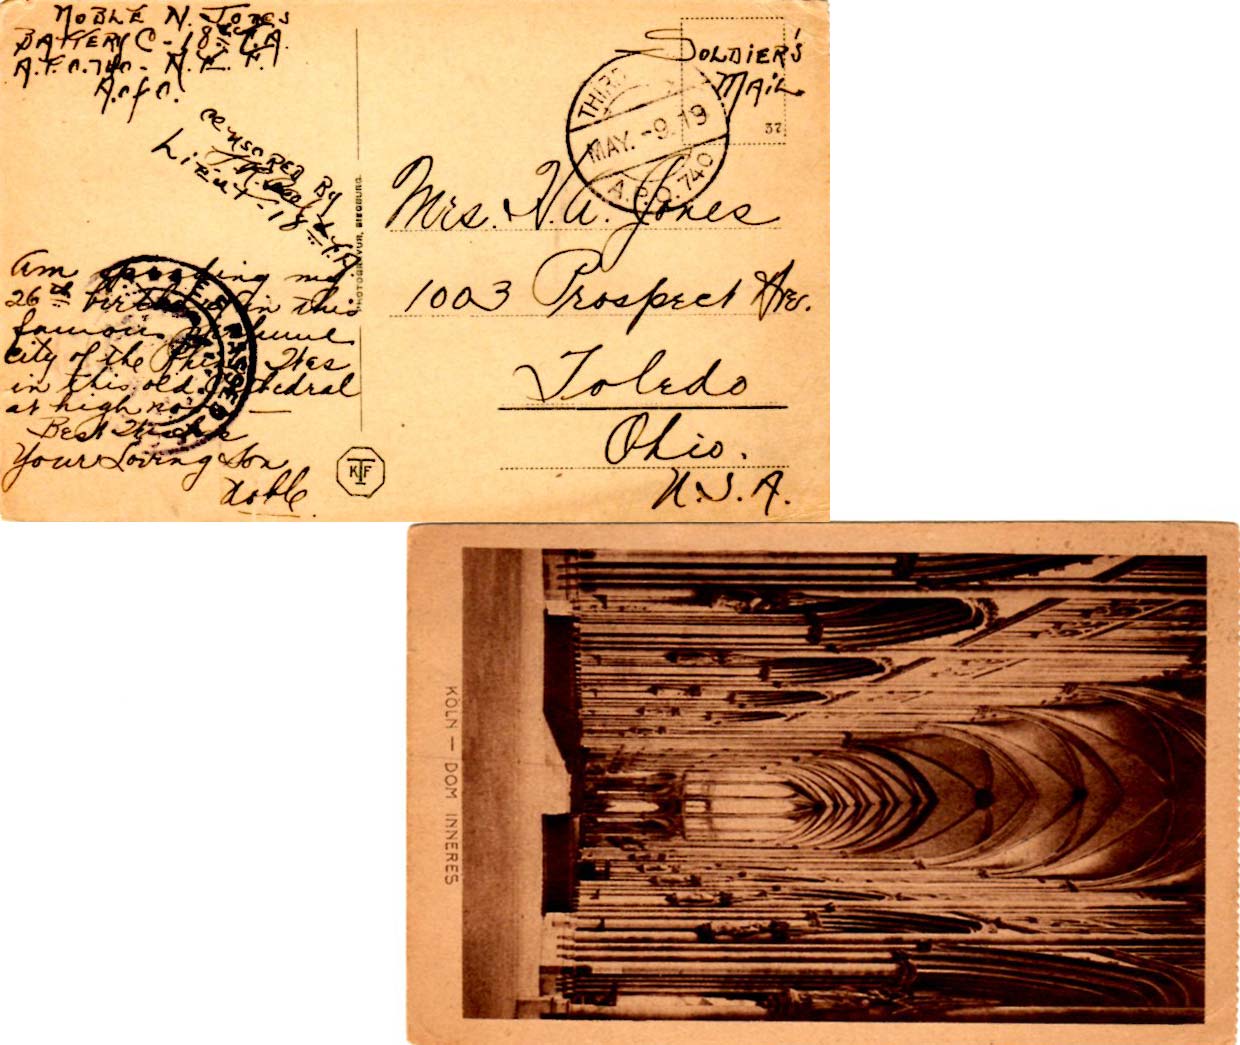 NOBLE N. JONES
BATTERY C - 18th F.A.
A.P.O. 740 - A. E. F.
A. of O.
CENSORED BY
LIEUT - 18th F.A.
SOLDIER'S
MAIL.
THIRD
MAY. -9. 19
A.P.O. 740
37
Mrs. N. A. Jones
1003 Prospect Ave.
Toledo
Ohio.
U.S.A.
PHOTOGRAVUR, SIEGBURG.
Am spending my
26th birthday in this
famous
city of the Rhine. Was
in this old Cathedral
at high noon —
Best Wishes
Your Loving Son
Noble.
PASSED
KTF
KÖLN — DOM INNERES